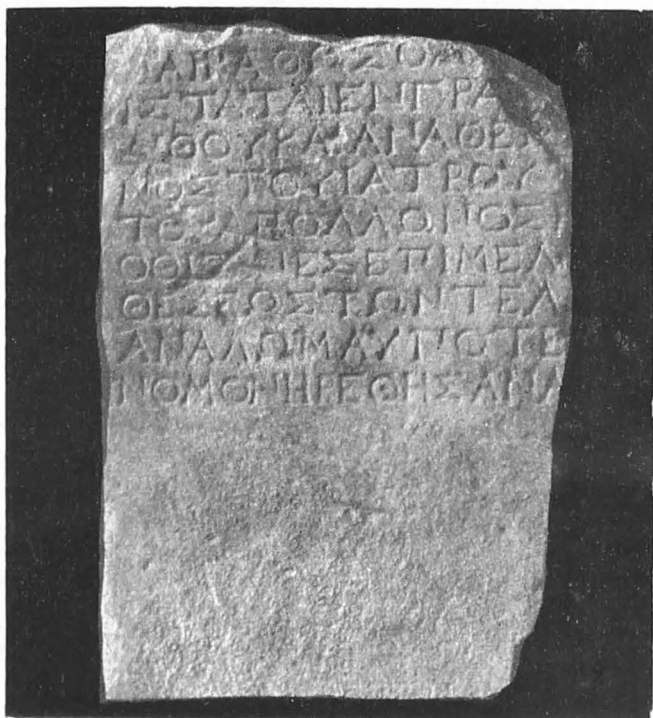 ΑΙΚΑΘΩΣΟ
ΙΣΤΑΤΑΙΕΝΓΡΑ
ΛΙΘΟΥΚΑΙΑΝΑΘΕ
ΝΟΣΤΟΥΙΑΤΡΟΥ
ΤΟΥΑΠΟΛΛΩΝΟΣ
ΙΕΣΕΠΙΜΕΛ
ΘΕΝΤΟΣΤΩΝΤΕΛ
ΑΝΑΛΩΜΑΥΠΟΤΕ
ΝΟΜΟΝΗΡΕΘΗΣΑΝΑ